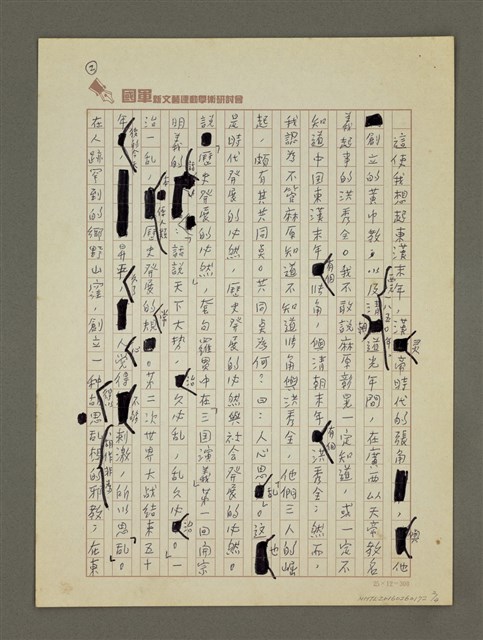 ②
國軍新文藝運動學術研討會
這使我想起東漢末年，漢靈帝時代的張角，他
創立的黃巾教，以及清朝道光年間，在廣西以天帝教名
義起事的洪秀全。我不敢說麻原彰晃一定知道，或一定不
知道中國東漢末年有個張角，個清朝末年有個洪秀全；然而，
我認為不管麻原知道不知道張角與洪秀全，他們三人的崛
起，頗有其共同點。共同點為何？曰：人心思亂。這也
是時代發展的必然，歷史發展的必然與社會發展的必然。
說歷史發展的必然，套句羅貫中在「三國演義」第一回開宗
明義的話：「話說天下大勢，久治必亂，亂久必治。」一
治一亂，本係人類歷史發展的常規。第二次世界大戰結束五十
年，昇平久了，人心覺得不夠刺激，所以思亂。
在人跡罕到的鄉野山窪，創立一種胡思亂想的邪教；在東
25×12=300